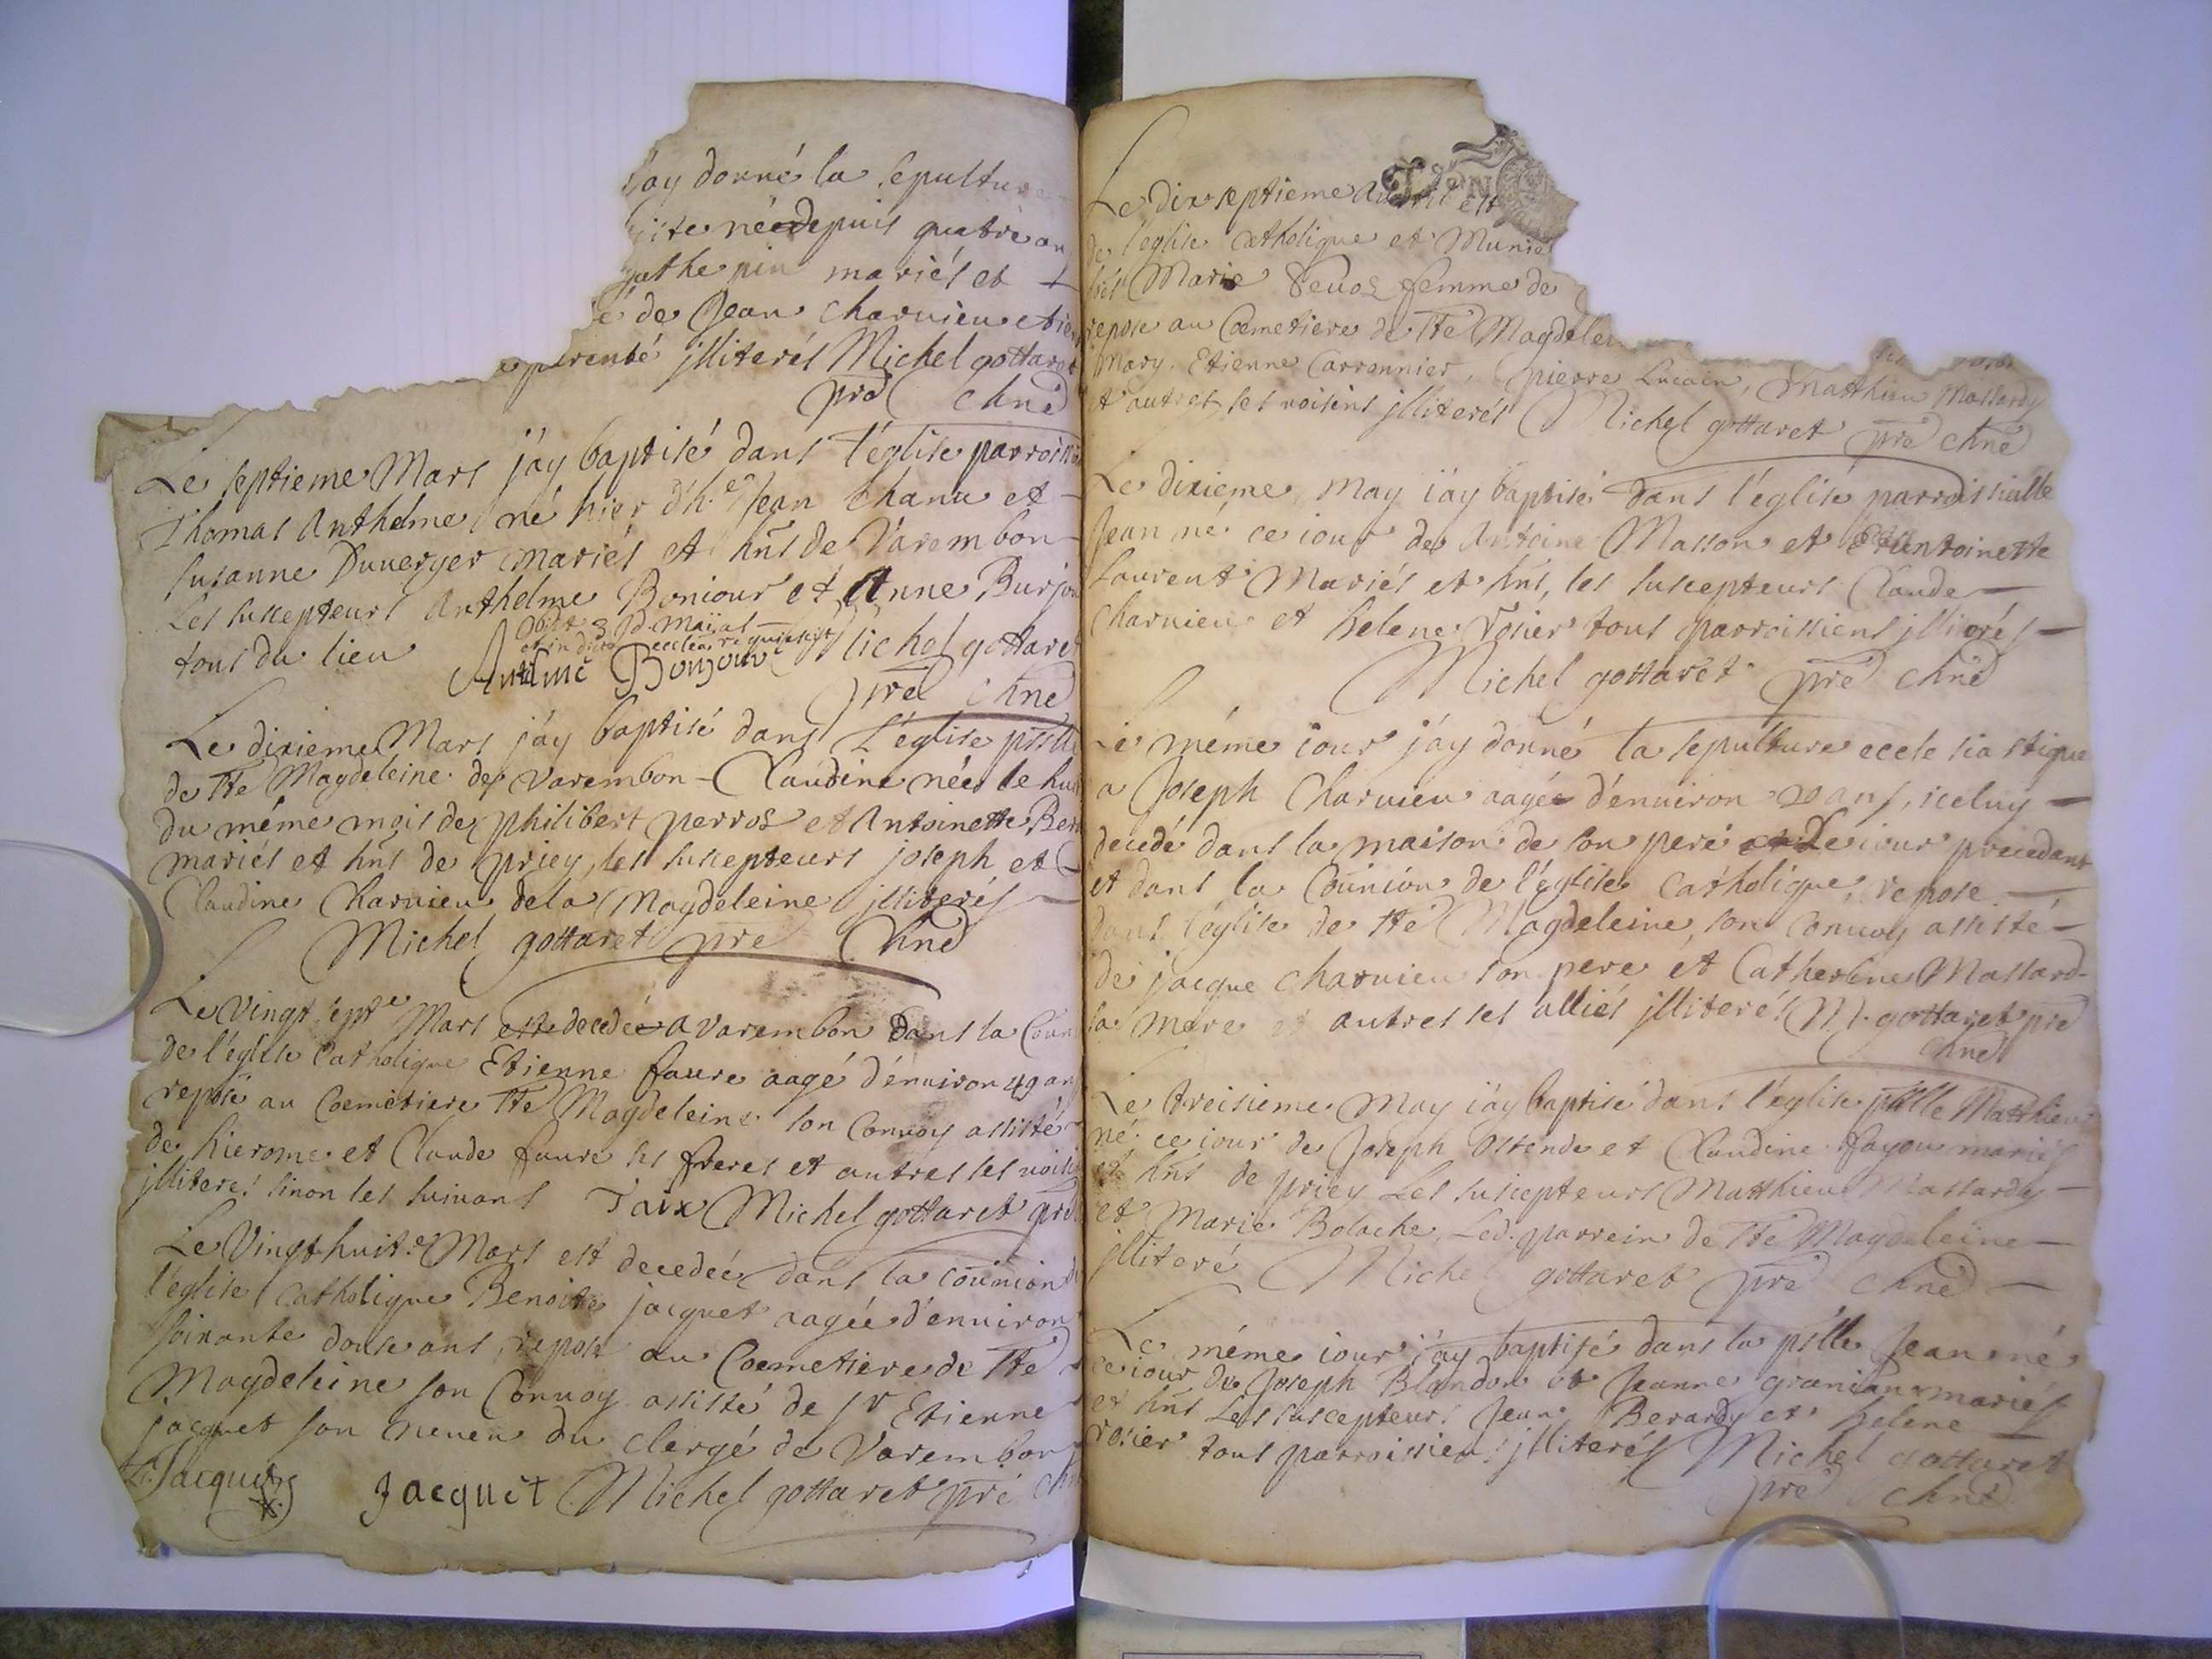 j'ay donné la sepulture
née depuis quatre an
mariés et
de Jean Charuieu et
illiterés Michel gottaret
pre chne
Le septieme Mars j'ay baptisé dans l'église parrois
Thomas Anthelme né hier d'h.e Jean Chanu et
Susanne Duuerger mariés et hñs de Varembon
Les suscepteurs Anthelme Boniour et Anne Burjou
tous du lieu Michel gottaret
Obiit 3 Maii
Bonjour
pre chne
Le dixieme Mars j'ay baptisé dans l'église pslle
de Ste Magdeleine de Varembon Claudine née le hui
du même mois de philibert perros et Antoinette Ber
mariés et hñs de priey, les suscepteurs joseph et
Claudine Charuieu de la Magdeleine illiterés
Michel gottaret pre Chne
Le Vingt septe Mars est decedée a varembon Dans la Coun
de l'église Catholique Etienne faure aagé d'enuiron 49 an
repose au Coemetiere Ste Magdeleine son Conuoy assisté
de hierome et Claude faure ses freres et autres ses voisi
illiteres sinon les suiuans Taix Michel gottaret pre
Le Vingt huit.e Mars est decedée dans la coũnion d
l'eglise Catholique Benoite jacquet aagée d'enuiron
soixante douse ans, repose au Coemetiere de Ste
Magdeleine son Conuoy assisté de sr Etienne
jacquet son neueu du clergé de Varembon
Jacquet Jacquet Michel gottaret pre ch
Le dix septieme Auuril est
de l'eglise Catholique et Munie
Marie femme de
repose au Coemetiere de Ste Magdelei
Mary, Etienne Carronnier, pierre Lucain, Matthieu Massardy
et autres ses voisins illiterés Michel gottaret pre chne
Le dixieme May i'ay baptisé dans l'église parroissialle
Jean né ce iour de Antoine Masson et Antoinette
Laurent Mariés et hñs, les suscepteurs Claude
Charuieu et helene Rosier tous parroissiens illiterés
Michel gottaret pre chne
Le même iour j'ay donné la sepulture ecclesiastique
a Joseph Charuieu aagée d'enuiron ans, iceluy
decedé dans la maison de son pere Le iour precedant
et dans la Coũnion de l'église Catholique, repose
dans l'église de Ste Magdeleine, son Conuoy assisté
de jacque Charuieu son pere et Catherine Massard
sa mere et autres ses alliés illiterés M. gottaret pre
chne
Le treisieme May i'ay baptisé dans l'église pslle Matthieu
né ce iour de Joseph Ostende et Claudine fayou mariés
et hñs de priey Les suscepteurs Matthieu Massardy
et Marie Bolache, Led. parrein de Ste Magdeleine
illiteré Michel gottaret pre chne
Le même iour i'ay baptisé dans la pslle Jean né
ce iour de Joseph Blandon et Jeanne mariés
et hñs Les suscepteurs Jean Berardy et helene
rosier tous parroissiens illiterés Michel gottaret
pre chne